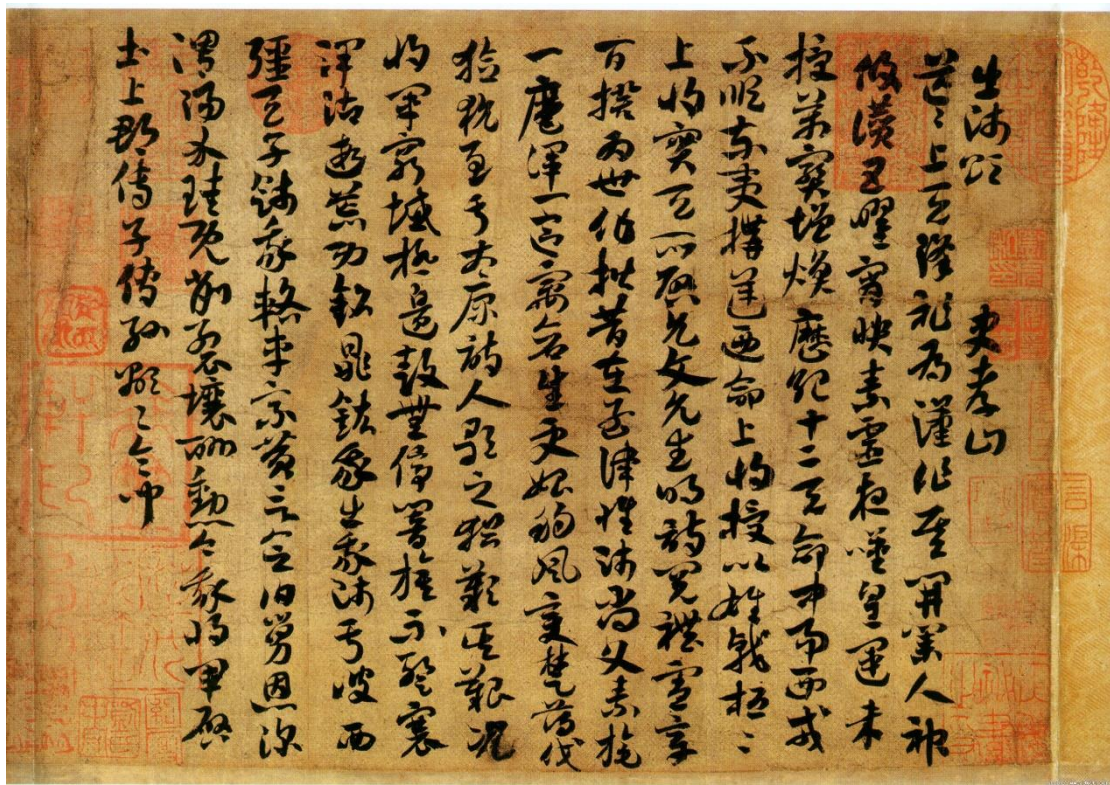 出師頌　史孝山
茫〻上天降祚為漢作基開業人神
攸讚五曜宵映素靈夜歎皇運未
授萬寶增煥歷紀十二天命中易西戎
不順東夷構逆迺命上將授以雄戟桓〻
上將寔天所啟允文允武明詩閱禮憲章
百揆為世作楷昔在孟津惟師尚父素旄
一麾渾一區宇蒼生更始朔風變楚薄伐
獫狁至于太原詩人歌之猶歎其艱況
我將軍窮域極邊鼓無停響旗不蹔褰
澤沾遐荒功銘鼎鉉我出我師于彼西
疆天子餞我輅車乘黃言念伯舅恩深
渭陽介珪既削裂壤酬勳今我將軍啟
土上郡傳子傳孫顯〻令問